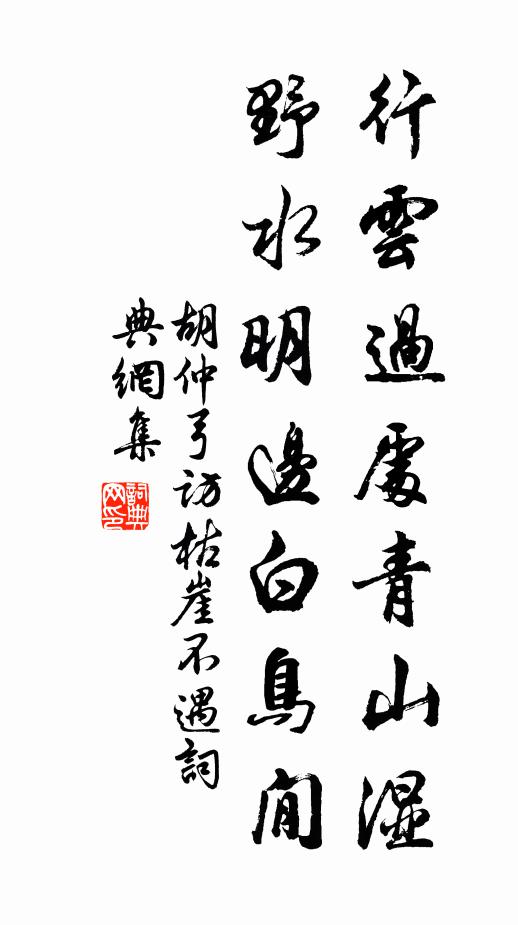 行雲過處青山湿
野水明邊白鳥閒
胡仲弓訪枯崖不遇詞
典網集
詞典网印